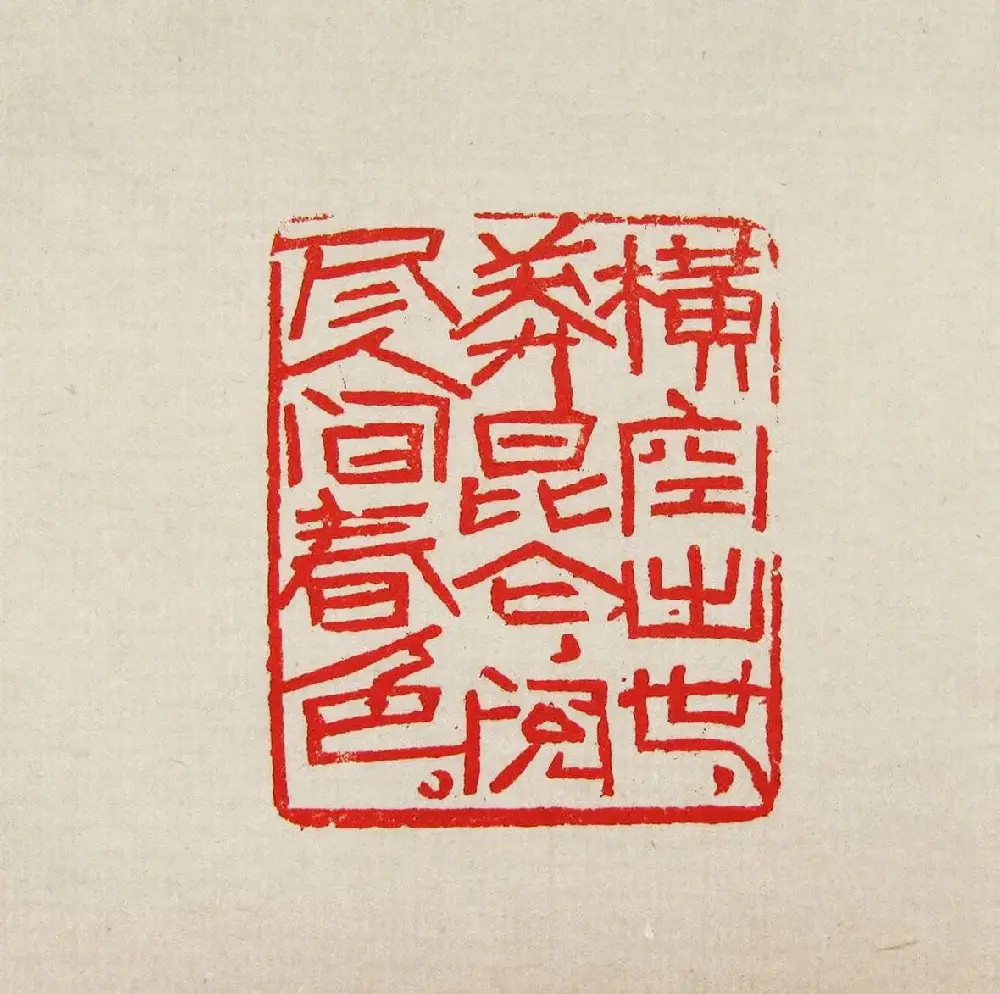 横空出世，
莽昆仑，阅
尽人间春色。